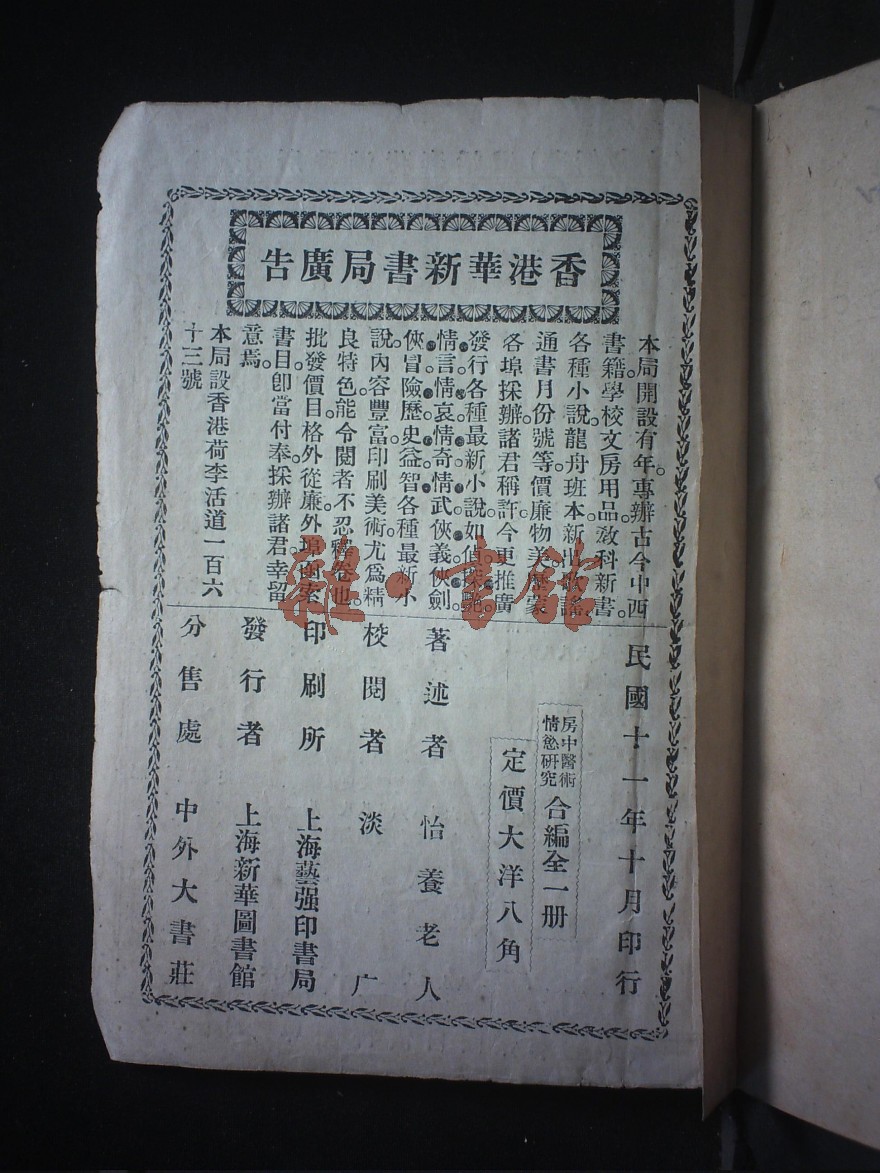 香港華新書局廣告
本局開設有年。專辦古今中西
書籍學校文房用品。教科新書。
各種小說。龍舟班本新出歌謠。
通書月份號等價廉物美。
各埠採辦諸君稱許。今更推廣
發行各種最新小說。如偵探。
情。言情。哀情。奇情。武俠。義俠。劍
俠。冒險。歷史。益智。各種最新小
說。內容豐富。印刷美術。尤爲精
良特色。能令閱者不忍釋卷也。
批發價目格外從廉。外埠函索
書目。卽當付奉。採辦諸君。幸留
意焉。
本局設香港荷李活道一百六
十三號
民國十一年十月印行
房中醫術
情慾研究
合編全一册
定價大洋八角
著述者 怡養老人
校閱者 淡广
印刷所 上海藝强印書局
發行者 上海新華圖書館
分售處 中外大書莊
雜·書館